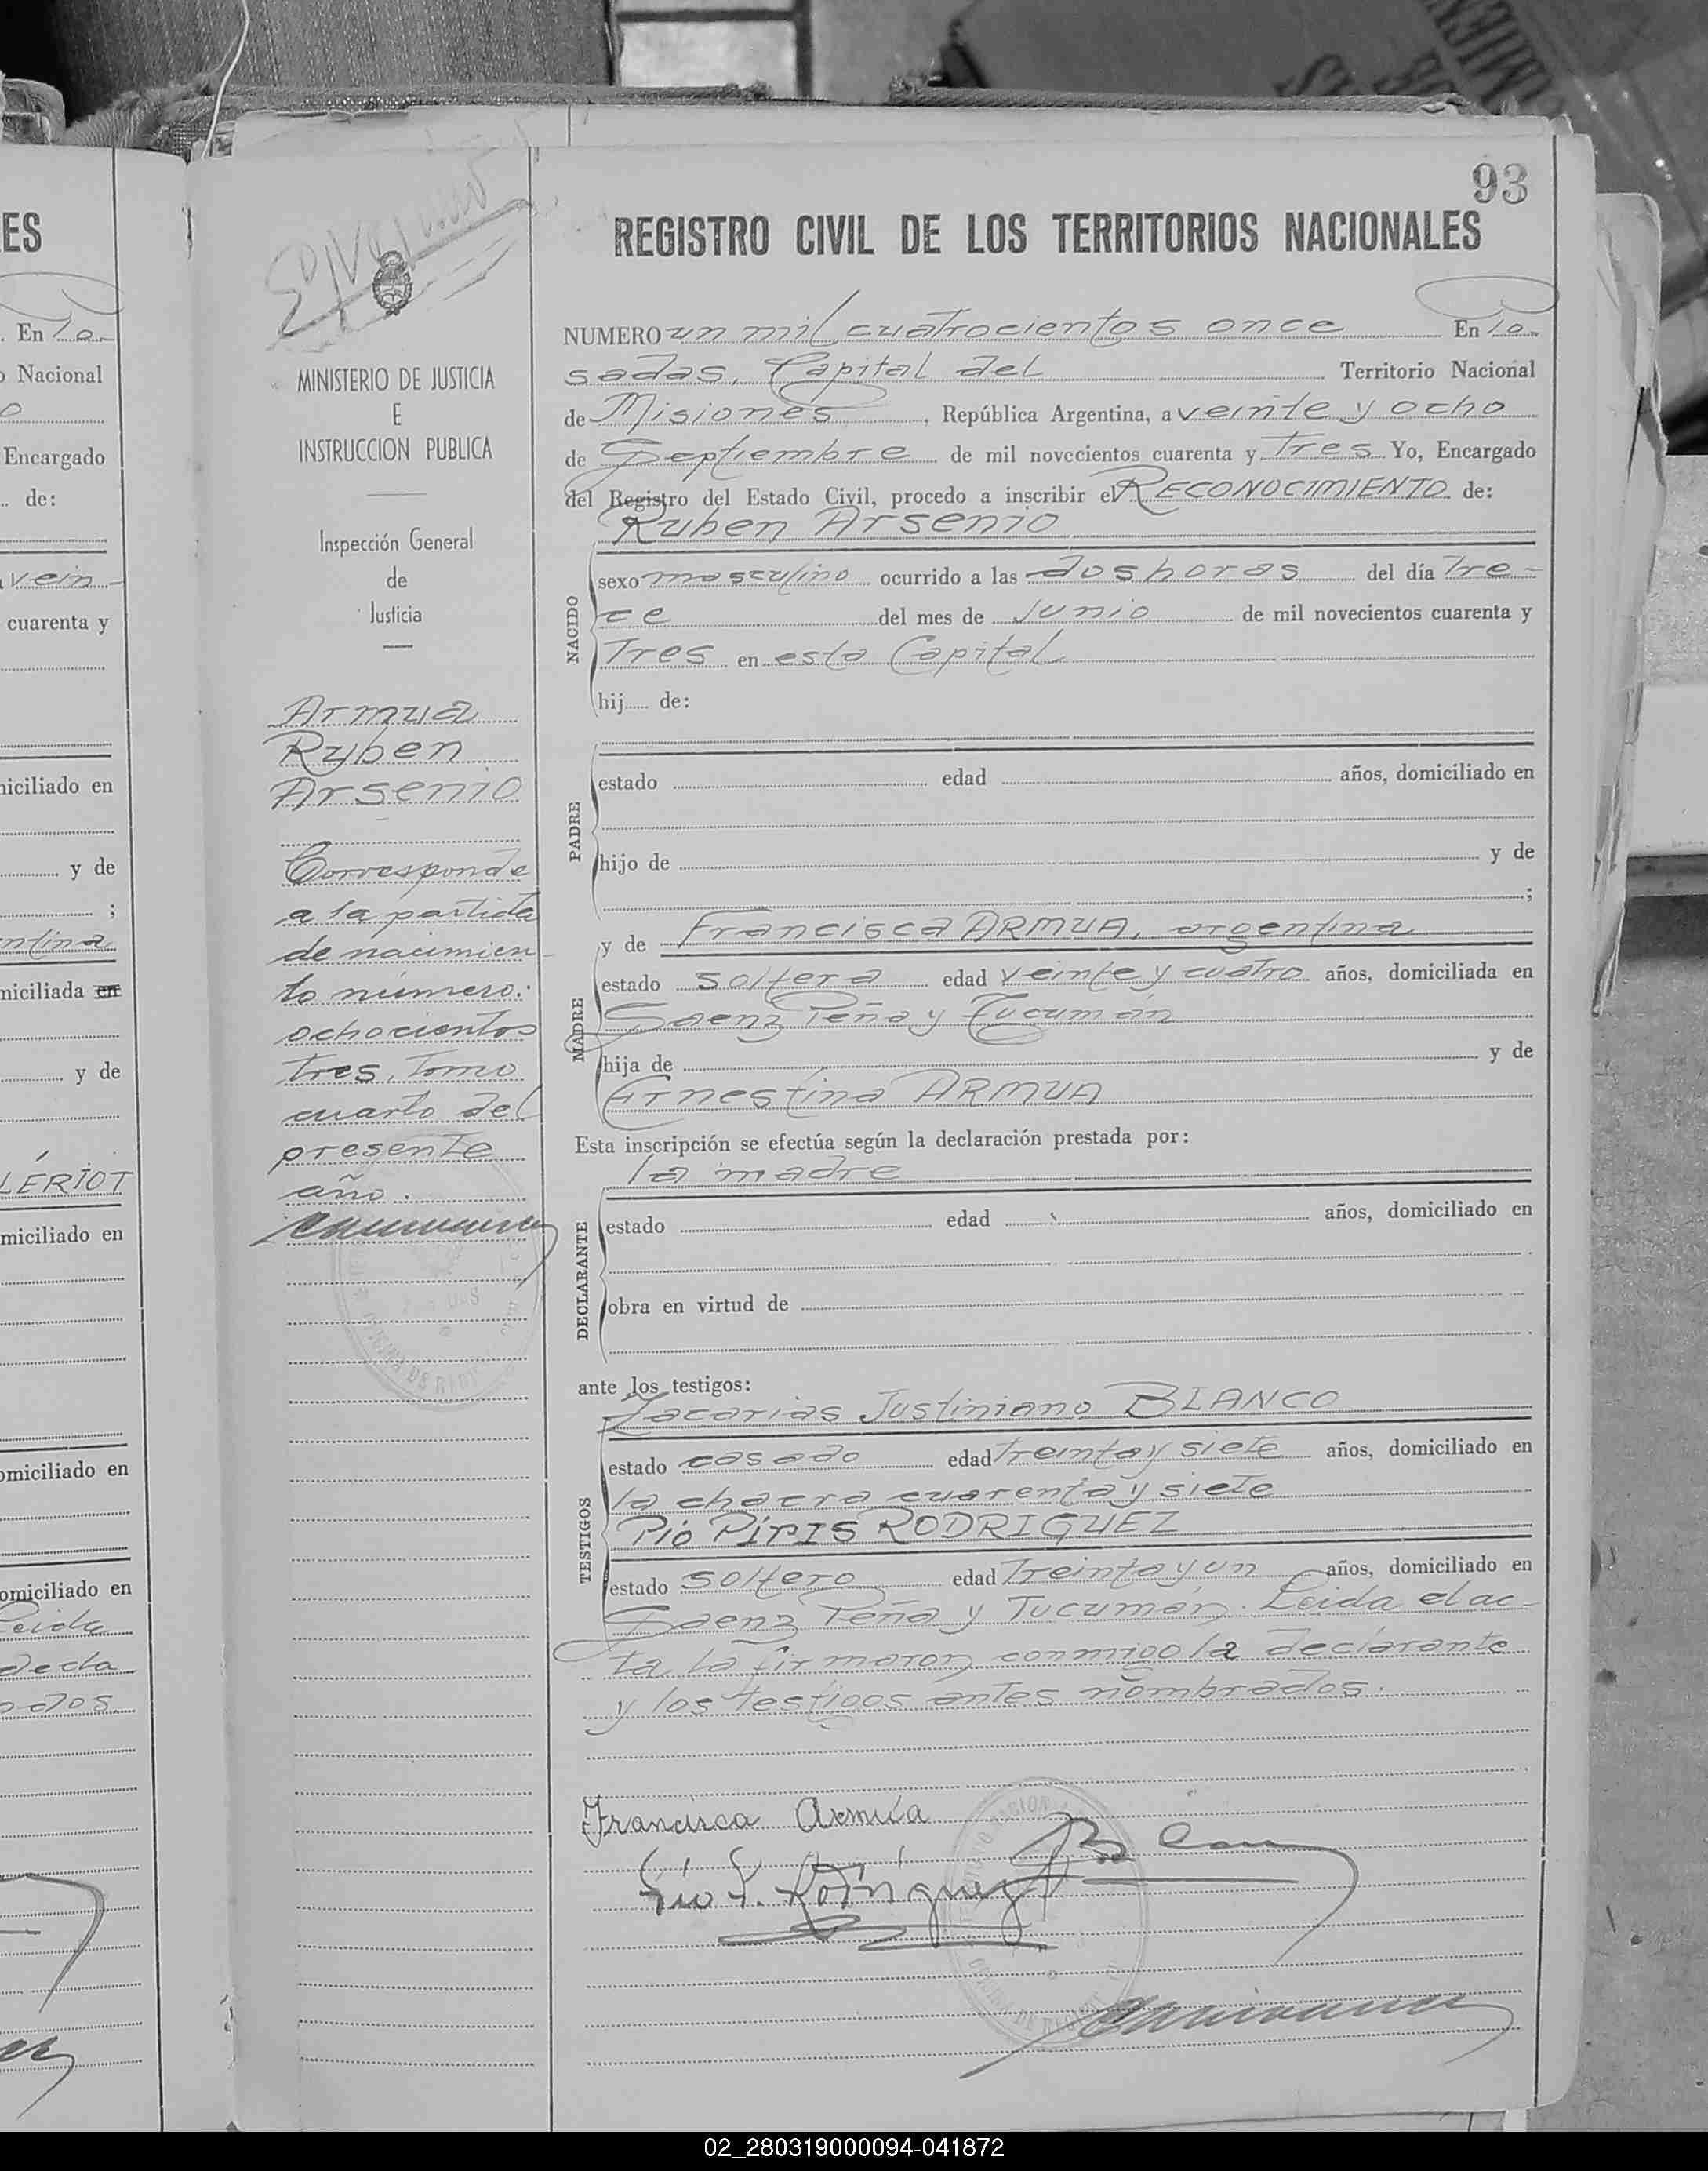 93
REGISTRO CIVIL DE LOS TERRITORIOS NACIONALES
MINISTERIO DE JUSTICIA
E
INSTRUCCION PUBLICA
Inspección General
de
Justicia
Armua
Ruben
Arsenio
Corresponde
a la partida
de nacimien-
to número:
ochocientos
tres, Tomo
cuarto del
presente
año.
NUMERO un mil cuatrocientos once En Po-
sadas, Capital del Territorio Nacional
de Misiones, República Argentina, a veinte y ocho
de Septiembre de mil novecientos cuarenta y tres Yo, Encargado
del Registro del Estado Civil, procedo a inscribir el RECONOCIMIENTO de:
Ruben Arsenio
NACIDO
sexo masculino ocurrido a las dos horas del día tre-
ce del mes de Junio de mil novecientos cuarenta y
Tres en esta Capital
hij de:
PADRE
estado edad años, domiciliado en
hijo de y de
;
MADRE
y de Francisca ARMUA, argentina
estado soltera edad veinte y cuatro años, domiciliada en
Saenz Peña y Tucumán
hija de y de
Ernestina ARMUA
Esta inscripción se efectúa según la declaración prestada por:
la madre
DECLARANTE
estado edad años, domiciliado en
obra en virtud de
ante los testigos:
TESTIGOS
Zacarias Justiniano BLANCO
estado casado edad treinta y siete años, domiciliado en
la chacra cuarenta y siete
Pío PIRIS RODRIGUEZ
estado soltero edad Treinta y un años, domiciliado en
Saenz Peña y Tucumán. Leida el ac-
ta la firmaron conmigo la declarante
y los testigos antes nombrados.
Francisca Armúa
Pío P. Rodríguez
ES
En Po-
o Nacional
Encargado
de:
vein-
cuarenta y
niciliado en
y de
;
ntina
miciliada en
y de
LÉRIOT
miciliado en
omiciliado en
omiciliado en
Leida
decla
ados.
02_280319000094-041872